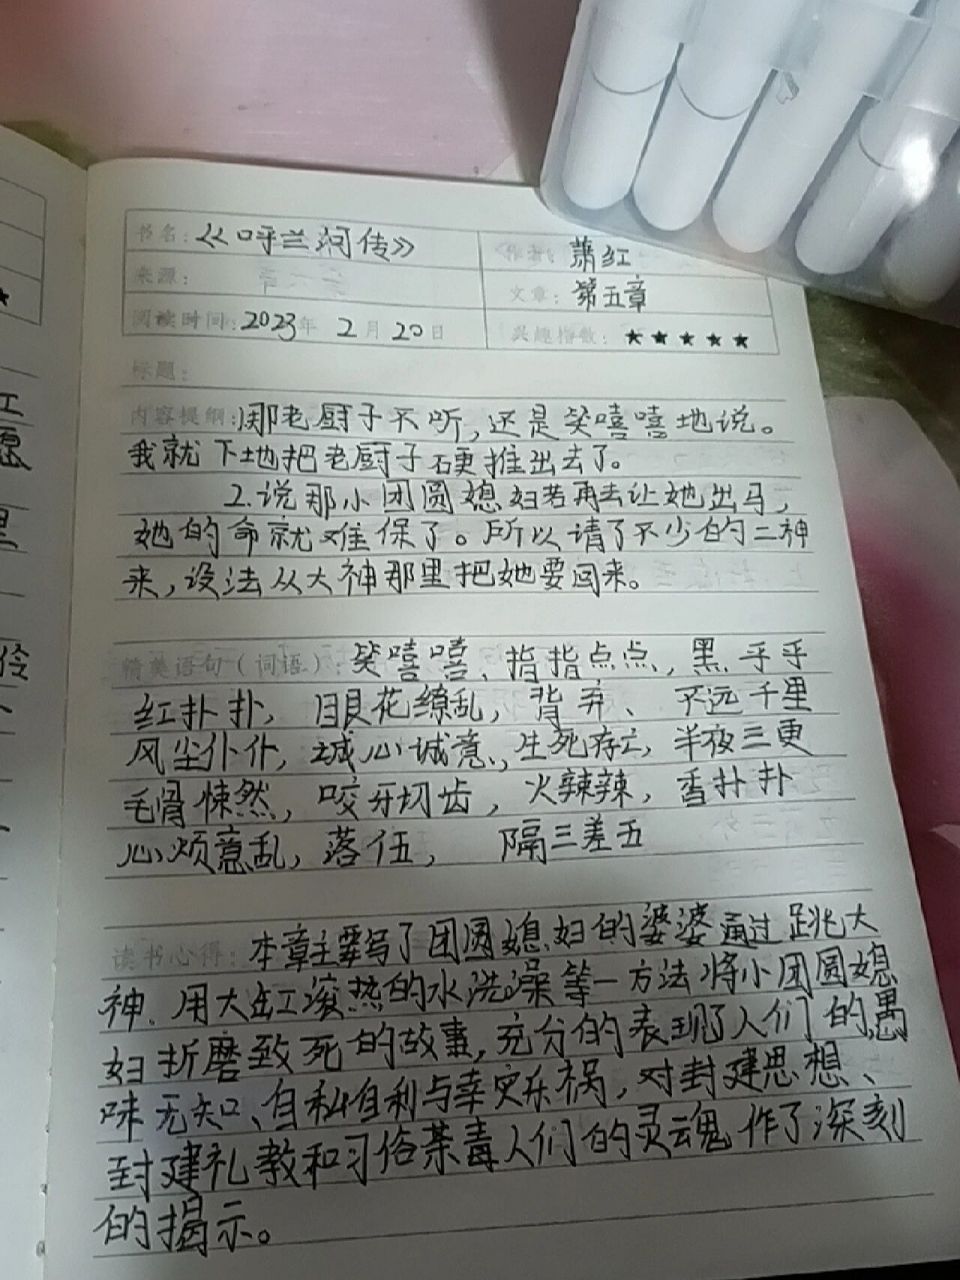 书名：《呼兰河传》 作者： 萧红
来源： 文章：第五章
阅读时间：2023年 2月20日 兴趣指数：★★★★★
标题：
内容提纲：那老厨子不听，还是笑嘻嘻地说。
我就下地把老厨子硬推出去了。
2.说那小团圆媳妇若再去让她出马，
她的命就难保了。所以请了不少的二神
来，设法从大神那里把她要回来。
精美语句（词语）：笑嘻嘻、指指点点，黑乎乎
红扑扑，眼花缭乱，背弃、不远千里
风尘仆仆，诚心诚意，生死存亡，半夜三更
毛骨悚然，咬牙切齿，火辣辣，香扑扑
心烦意乱，落伍，隔三差五
读书心得：本章主要写了团圆媳妇的婆婆通过跳大
神、用大缸滚热的水洗澡等一方法将小团圆媳
妇折磨致死的故事，充分的表现了人们的愚
昧无知、自私自利与幸灾乐祸，对封建思想、
封建礼教和习俗荼毒人们的灵魂作了深刻
的揭示。